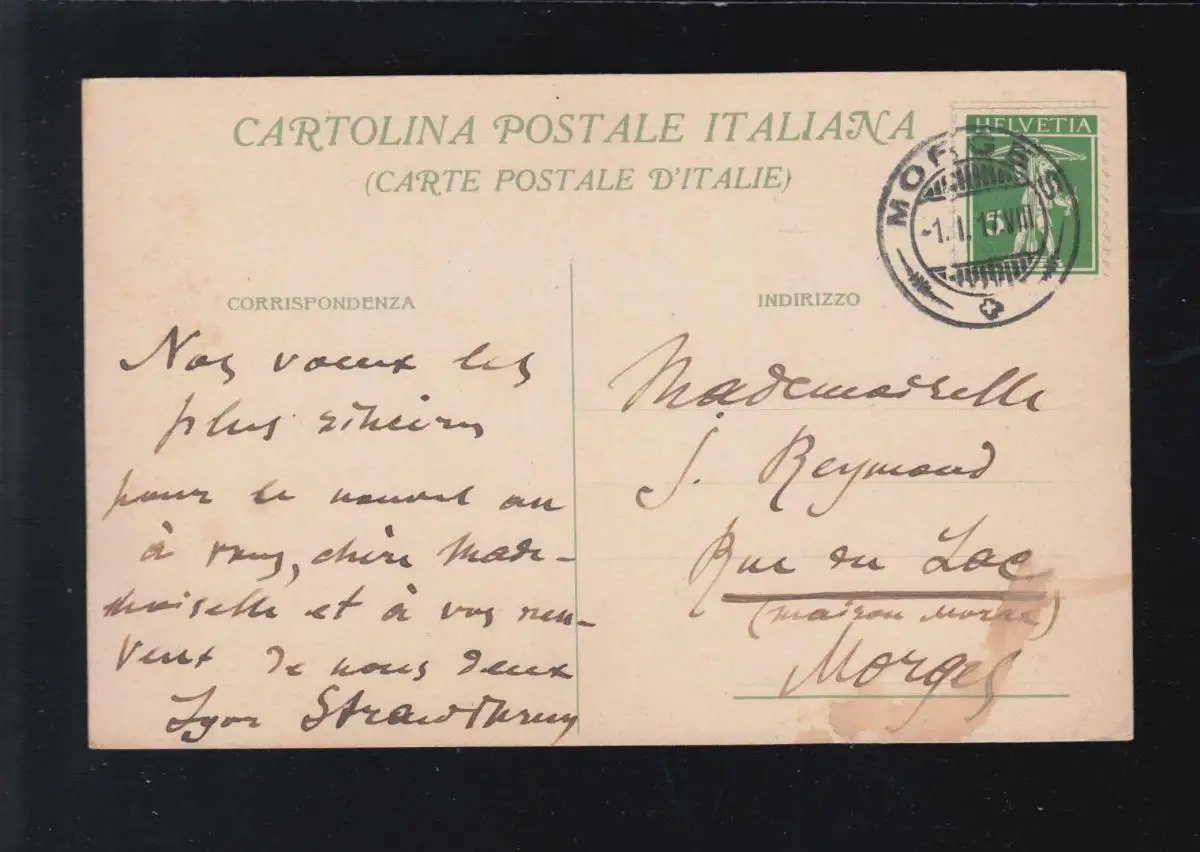 CARTOLINA POSTALE ITALIANA
(CARTE POSTALE D'ITALIE)
HELVETIA
MORGES
-1.I.17.VIII
CORRISPONDENZA
Nos vœux les
plus sincères
pour le nouvel an
à vous, chère Made-
moiselle et à vos neu-
veux de nous deux
Igor Strawinsky
INDIRIZZO
Mademoiselle
J. Reymond
Rue du Lac
(maison Morax)
Morges